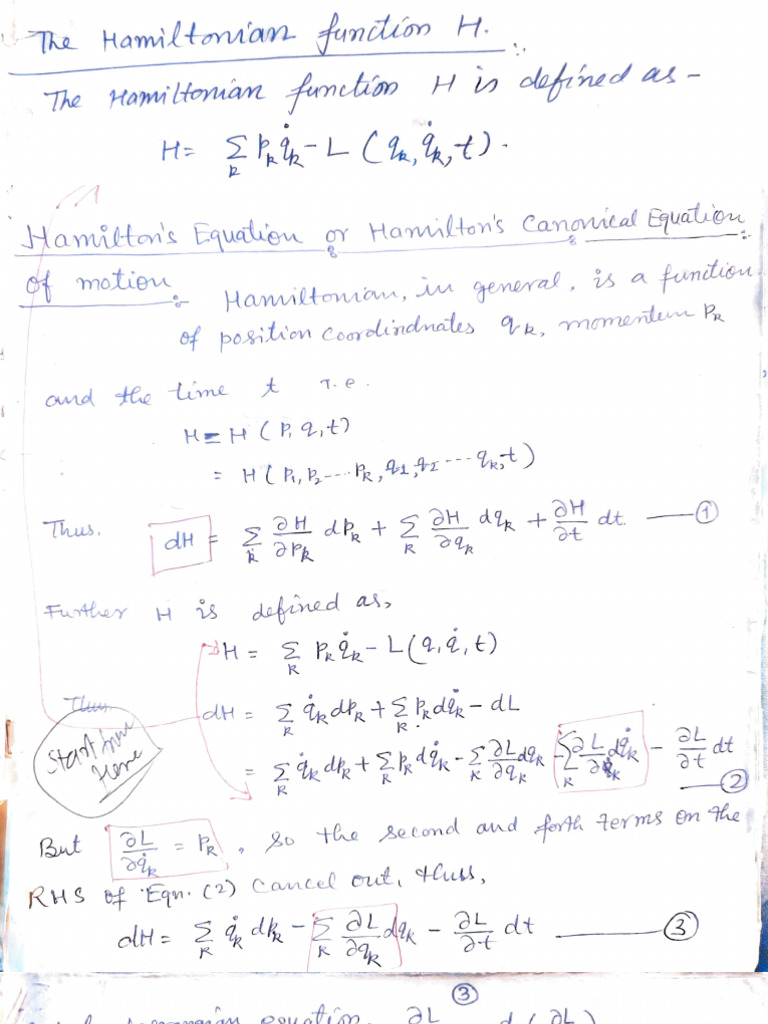 The Hamiltonian function H.
The Hamiltonian function H is defined as –
H = Σ_k p_k q̇_k – L (q_k, q̇_k, t).
Hamilton's Equation or Hamilton's Canonical Equation
of motion :- Hamiltonian, in general, is a function
of position coordindnates q_k, momentum p_k
and the time t i.e.
H = H (p, q, t)
= H (p₁, p₂ ---- p_k, q₁, q₂ ---- q_k, t)
Thus, dH = Σ_k ∂H/∂p_k dp_k + Σ_k ∂H/∂q_k dq_k + ∂H/∂t dt. —— ①
Further H is defined as,
H = Σ_k p_k q̇_k – L (q, q̇, t)
Thus dH = Σ_k q̇_k dp_k + Σ_k p_k dq̇_k – dL
Start from Here
= Σ_k q̇_k dp_k + Σ_k p_k dq̇_k – Σ_k ∂L/∂q_k dq_k – Σ_k ∂L/∂q̇_k dq̇_k – ∂L/∂t dt —— ②
But ∂L/∂q̇_k = p_k, so the second and forth terms on the
RHS of Eqn. (2) cancel out, thuss,
dH = Σ_k q̇_k dp_k – Σ_k ∂L/∂q_k dq_k – ∂L/∂t dt —— ③
③
equation, ∂L d (∂L)